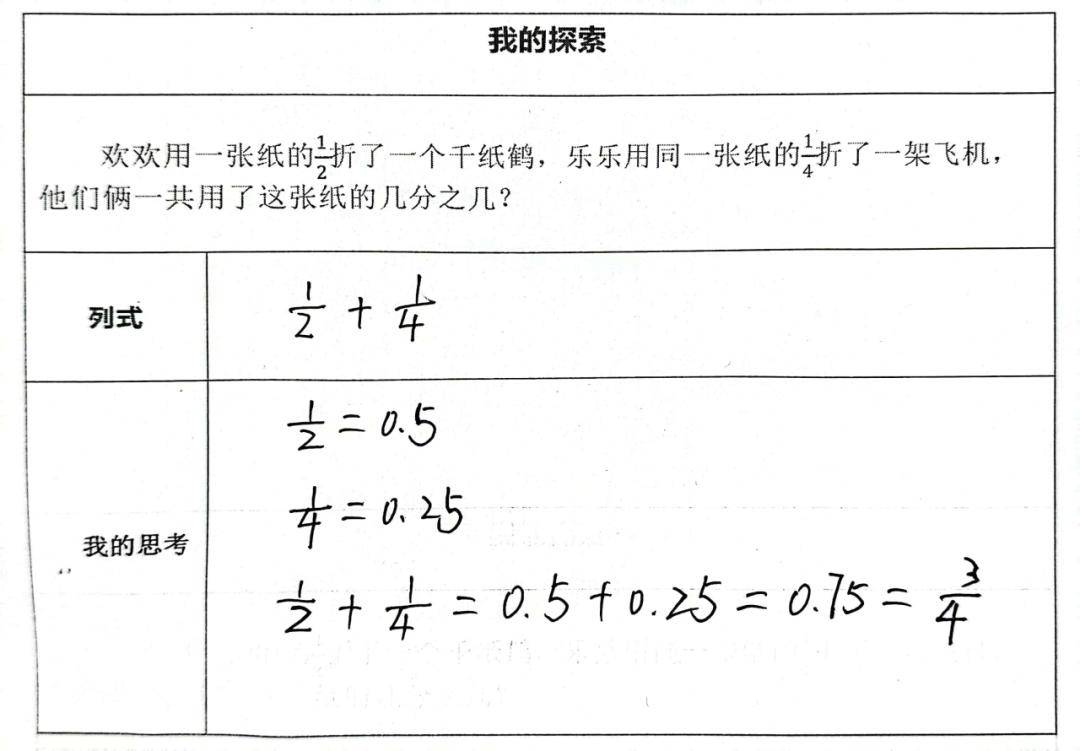 我的探索
欢欢用一张纸的1/2折了一个千纸鹤，乐乐用同一张纸的1/4折了一架飞机，
他们俩一共用了这张纸的几分之几？
列式
1/2 + 1/4
1/2 = 0.5
1/4 = 0.25
我的思考
1/2 + 1/4 = 0.5 + 0.25 = 0.75 = 3/4